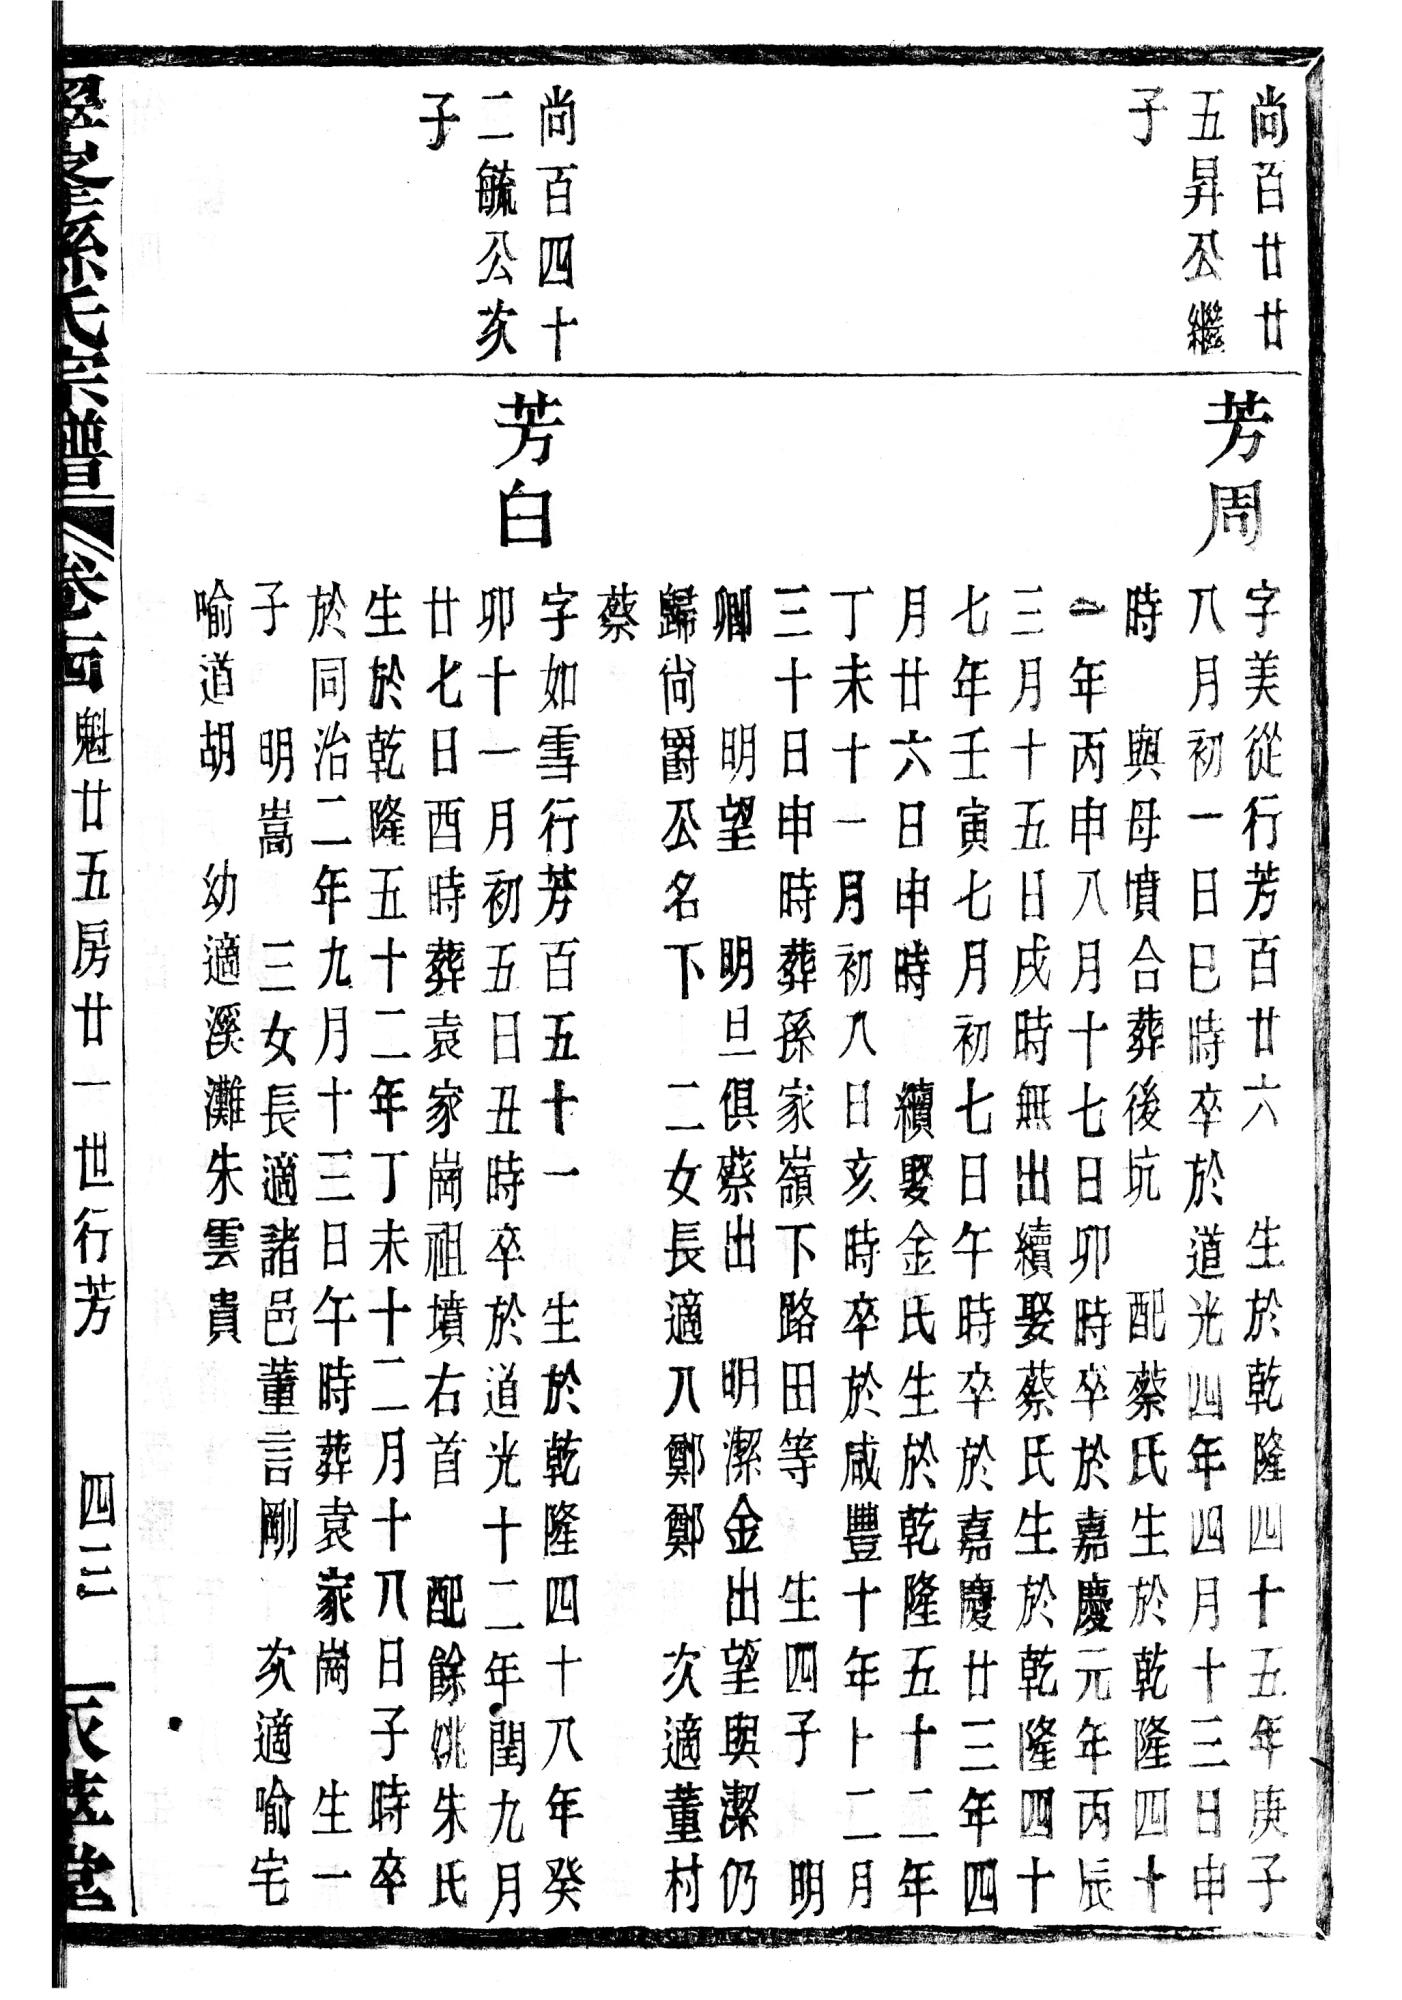 尚百廿廿
五昇公繼
子
芳周
字美從行芳百廿六　生於乾隆四十五年庚子
八月初一日巳時卒於道光四年四月十三日申
時　與母墳合葬後坑　配蔡氏生於乾隆四十
一年丙申八月十七日卯時卒於嘉慶元年丙辰
三月十五日戌時無出續娶蔡氏生於乾隆四十
七年壬寅七月初七日午時卒於嘉慶廿三年四
月廿六日申時　續娶金氏生於乾隆五十二年
丁未十一月初八日亥時卒於咸豐十年十二月
三十日申時葬孫家嶺下路田等　生四子　明
卿　明望　明旦俱蔡出　明潔金出望與潔仍
歸尚爵公名下　二女長適八鄭鄭　次適董村
蔡
尚百四十
二毓公次
子
芳白
字如雪行芳百五十一　生於乾隆四十八年癸
卯十一月初五日丑時卒於道光十二年閏九月
廿七日酉時葬袁家崗祖墳右首　配餘姚朱氏
生於乾隆五十二年丁未十二月十八日子時卒
於同治二年九月十三日午時葬袁家崗　生一
子　明嵩　三女長適諸邑董言剛　次適喻宅
喻道胡　幼適溪灘朱雲貴
孫氏宗譜　卷十四　魁廿五房廿一世行芳　四三　堂